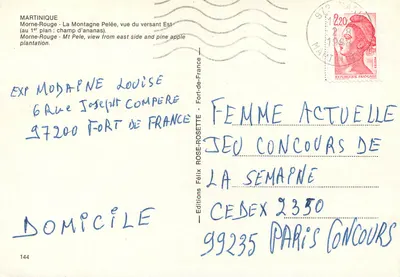 MARTINIQUE
Morne-Rouge - La Montagne Pelée, vue du versant Est
(au 1er plan : champ d'ananas).
Morne-Rouge - Mt Pele, view from east side and pine apple
plantation.
EXP MODAINE LOUISE
6 Rue JOSEPH COMPERE
97200 FORT DE FRANCE
DOMICILE
144
Editions Félix ROSE-ROSETTE - Fort-de-France
2,20
FEMME ACTUELLE
JEU CONCOURS DE
LA SEMAINE
CEDEX 2350
99235 PARIS CONCOURS